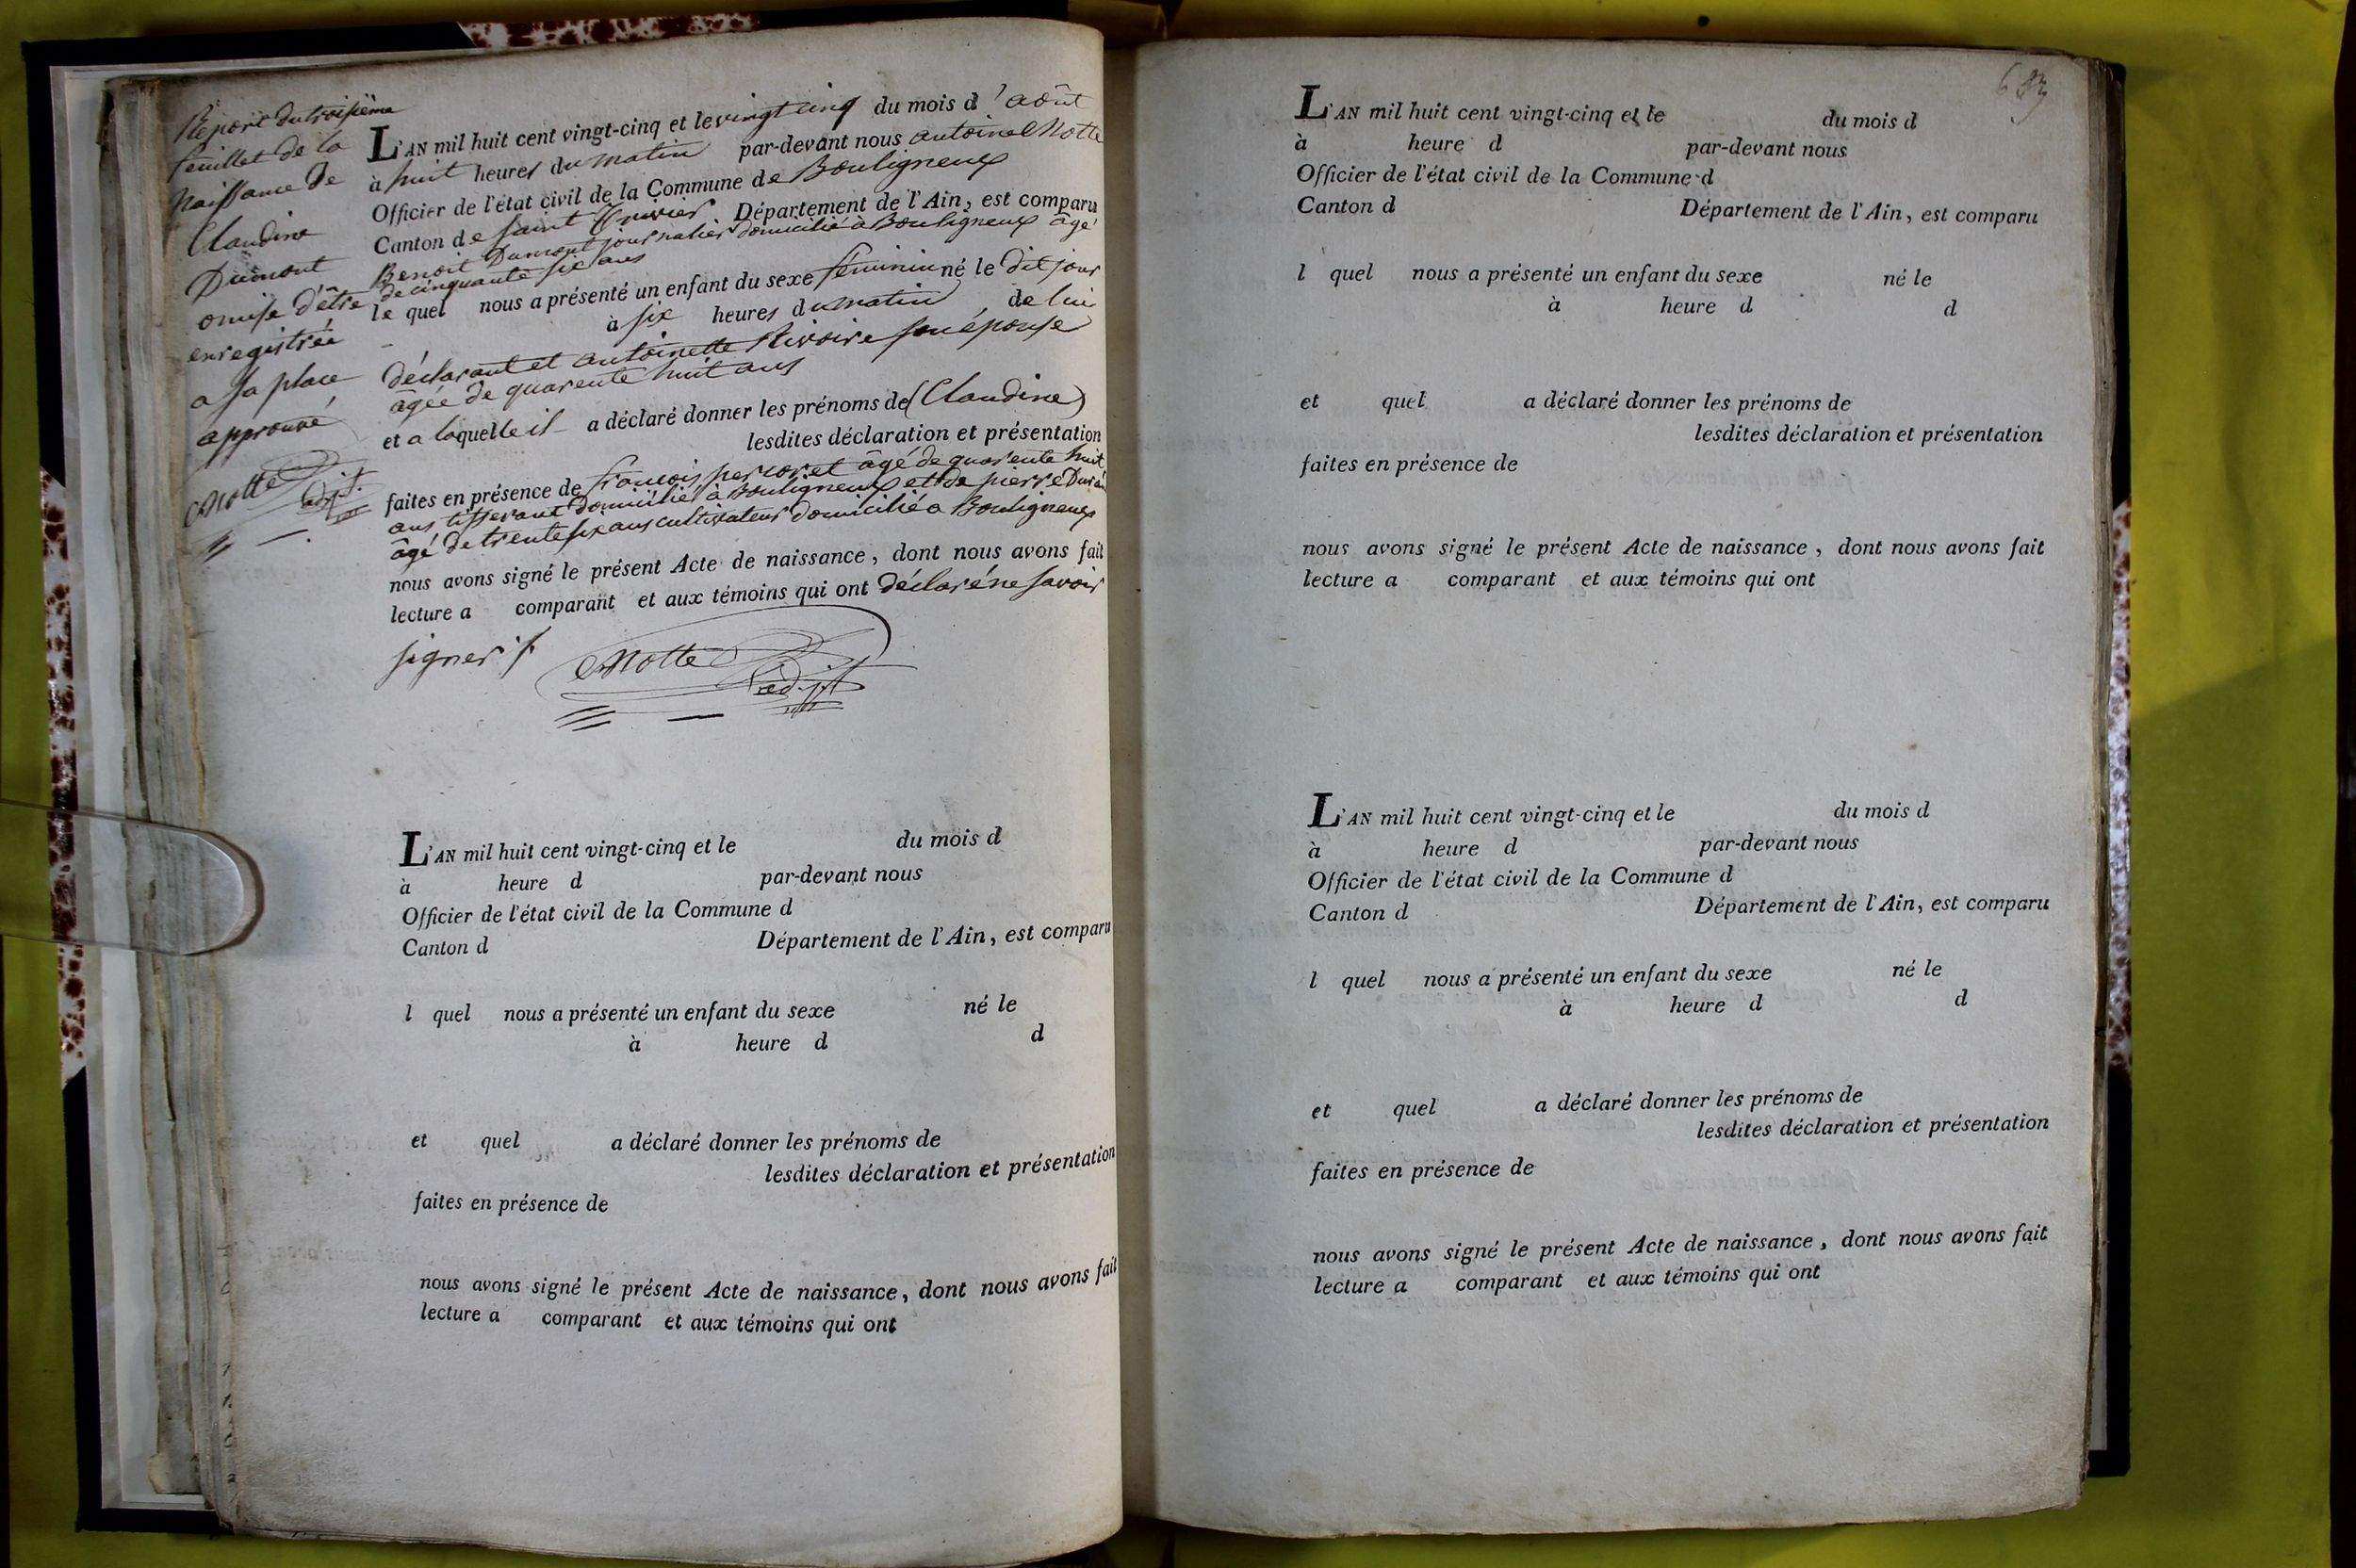 Report du troisième
feuillet de la
Naissance de
Claudine
Dumont
omise d'être
enregistrée
a sa place
approuvé
Motte
adjt.
L'AN mil huit cent vingt-cinq et le vingt cinq du mois d'août
à huit heures du matin par-devant nous antoine Motte
Officier de l'état civil de la Commune de Bouligneux
Canton de saint Trivier Département de l'Ain, est comparu
Benoit Dumont journalier domicilié à Bouligneux âgé
de cinquante six ans
le quel nous a présenté un enfant du sexe féminin né le dit jour
à six heures du matin de lui
déclarant et antoinette Rivoire son épouse
âgée de quarente huit ans
et a laquelle il a déclaré donner les prénoms de (Claudine)
lesdites déclaration et présentation
faites en présence de françois âgé de quarente huit
ans tisserant domicilié à Bouligneux et de pierre
âgé de trente six ans cultivateur domicilié a Bouligneux
nous avons signé le présent Acte de naissance, dont nous avons fait
lecture a comparant et aux témoins qui ont déclaré ne savoir
signer
Motte
adjt
L'AN mil huit cent vingt-cinq et le du mois d
à heure d par-devant nous
Officier de l'état civil de la Commune d
Canton d Département de l'Ain, est comparu
l quel nous a présenté un enfant du sexe né le
à heure d d
et quel a déclaré donner les prénoms de
lesdites déclaration et présentation
faites en présence de
nous avons signé le présent Acte de naissance, dont nous avons fait
lecture a comparant et aux témoins qui ont
L'AN mil huit cent vingt-cinq et le du mois d
à heure d par-devant nous
Officier de l'état civil de la Commune d
Canton d Département de l'Ain, est comparu
l quel nous a présenté un enfant du sexe né le
à heure d d
et quel a déclaré donner les prénoms de
lesdites déclaration et présentation
faites en présence de
nous avons signé le présent Acte de naissance, dont nous avons fait
lecture a comparant et aux témoins qui ont
L'AN mil huit cent vingt-cinq et le du mois d
à heure d par-devant nous
Officier de l'état civil de la Commune d
Canton d Département de l'Ain, est comparu
l quel nous a présenté un enfant du sexe né le
à heure d d
et quel a déclaré donner les prénoms de
lesdites déclaration et présentation
faites en présence de
nous avons signé le présent Acte de naissance, dont nous avons fait
lecture a comparant et aux témoins qui ont